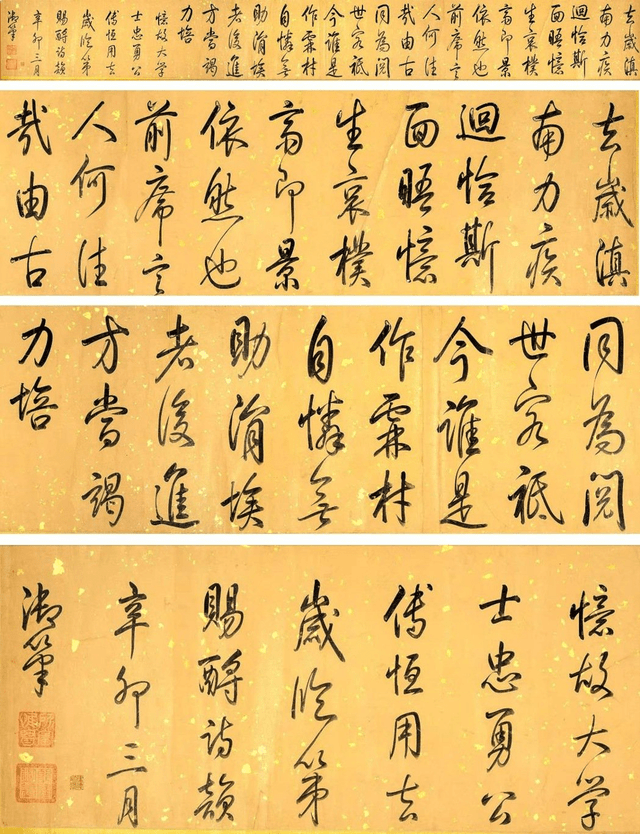 去歲滇
南力疾
迴恰斯
面晤憶
生哀樸
齋即景
依然也
前席言
人何往
哉由古
同為閱
世客祗
今誰是
作霖材
自憐無
助涓埃
老後進
方當竭
力培
憶故大學
士忠勇公
傅恒用去
歲臨第
賜酹詩韻
辛卯三月
御筆
去歲滇
南力疾
迴恰斯
面晤憶
生哀樸
齋即景
依然也
前席言
人何往
哉由古
同為閱
世客祗
今誰是
作霖材
自憐無
助涓埃
老後進
方當竭
力培
憶故大學
士忠勇公
傅恒用去
歲臨第
賜酹詩韻
辛卯三月
御筆